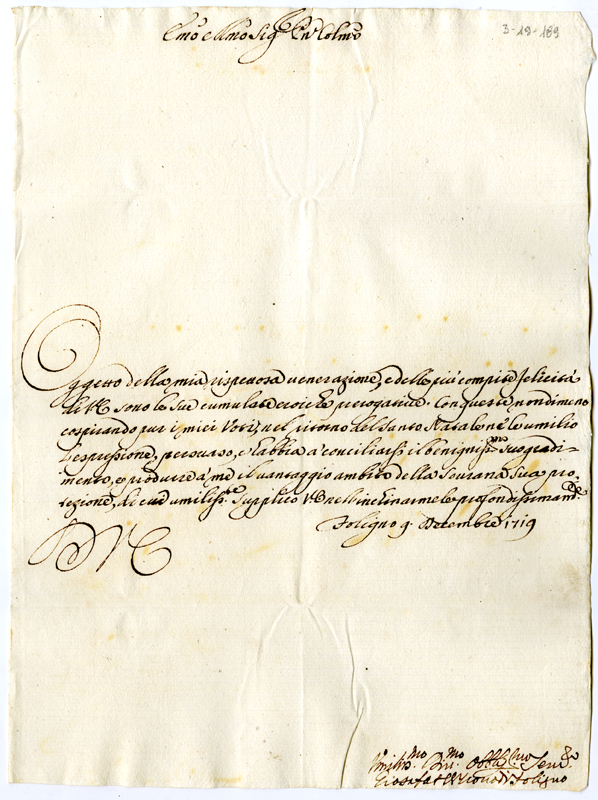 Emo e Rmo Sig.r Pn Colmo
3-19-189
Oggetto della mia rispettosa venerazione, e delle più compite felicità
di VE sono le sue cumulate eroiche prerogative. Con queste nondimeno
cospirando pur i miei Voti, nel ritorno del Santo Natale ne le umilio
l'espressione, persuaso, e l'abbia a conciliarsi il benigniss.mo Suo gradi-
mento, e produrre à me il vantaggio ambito della Sourana Sua pro-
tezione, di cui umiliss.te supplico VE nell'inclinarmele profondissimam.te
Foligno 9. Decembre 1719
VE
Umilis.mo Div.mo Obblig.mo Seru.e
Giosafat Vescouo di Foligno